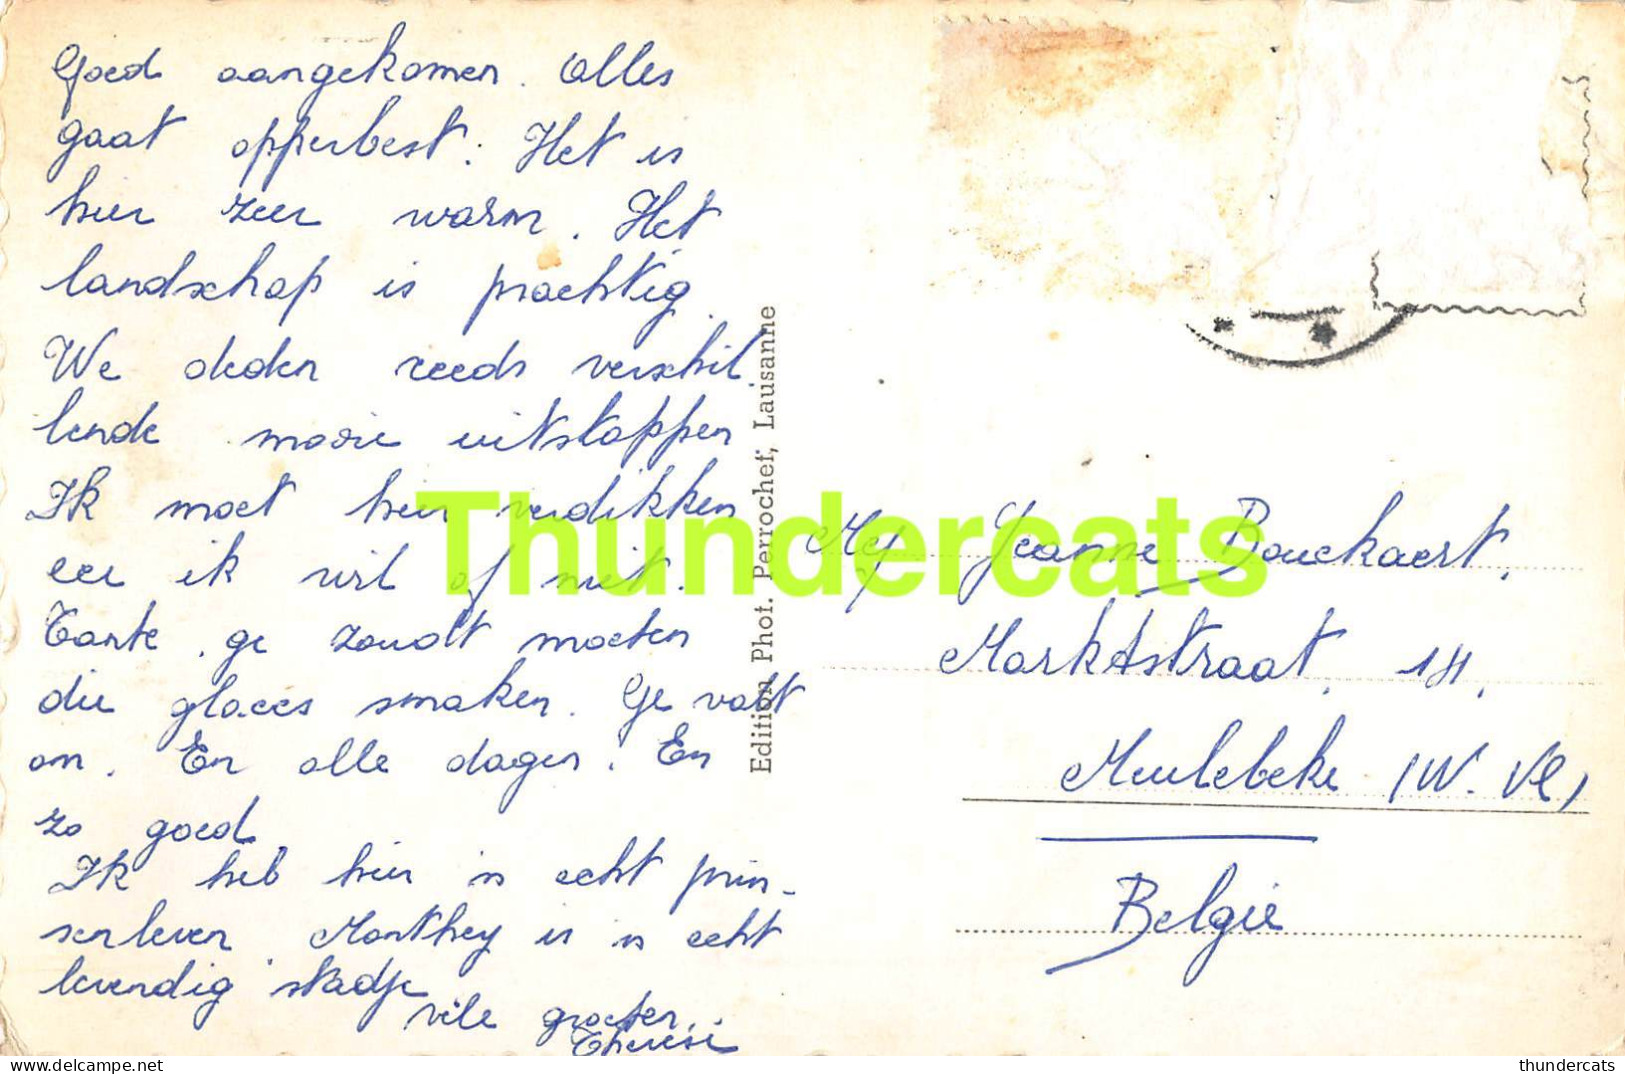 Goed aangekomen. Alles
gaat opperbest. Het is
hier zeer warm. Het
landschap is prachtig.
We deden reeds verschil
lende mooie uitstappen
Ik moet hier verdikken
eer ik wil of niet.
Tante, ge zoudt moeten
die glaces smaken. Ge valt
om. En alle dagen. En
zo goed.
Ik heb hier 'n echt prin-
senleven. Monthey is 'n echt
levendig stadje
Vele groeten.
Therese
Edition Phot. Perrochet, Lausanne
Mej Jeanne Bouckaert,
Marktstraat, 14,
Meulebeke (W. Vl)
België
Thundercats
delcampe.net
thundercats